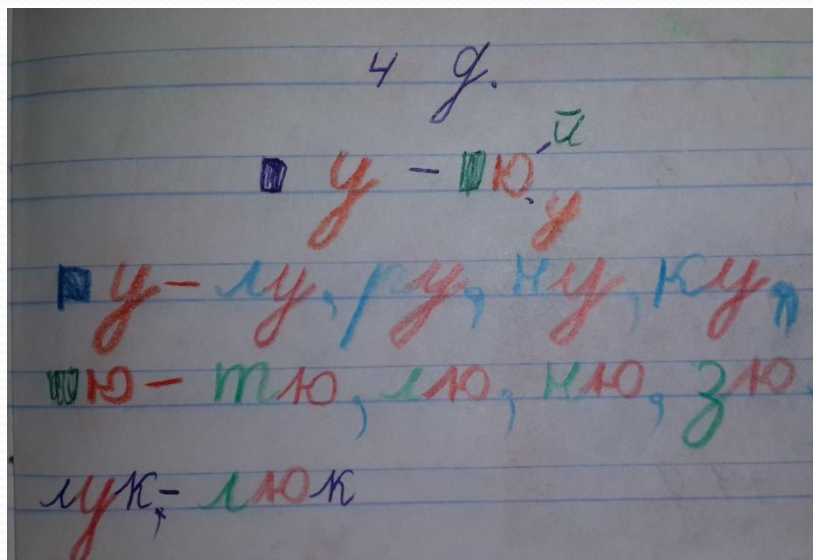 4 д.
у - ю й
у
у - лу, ру, ну, ку,
ю - тю, лю, ню, зю.
лук, - люк